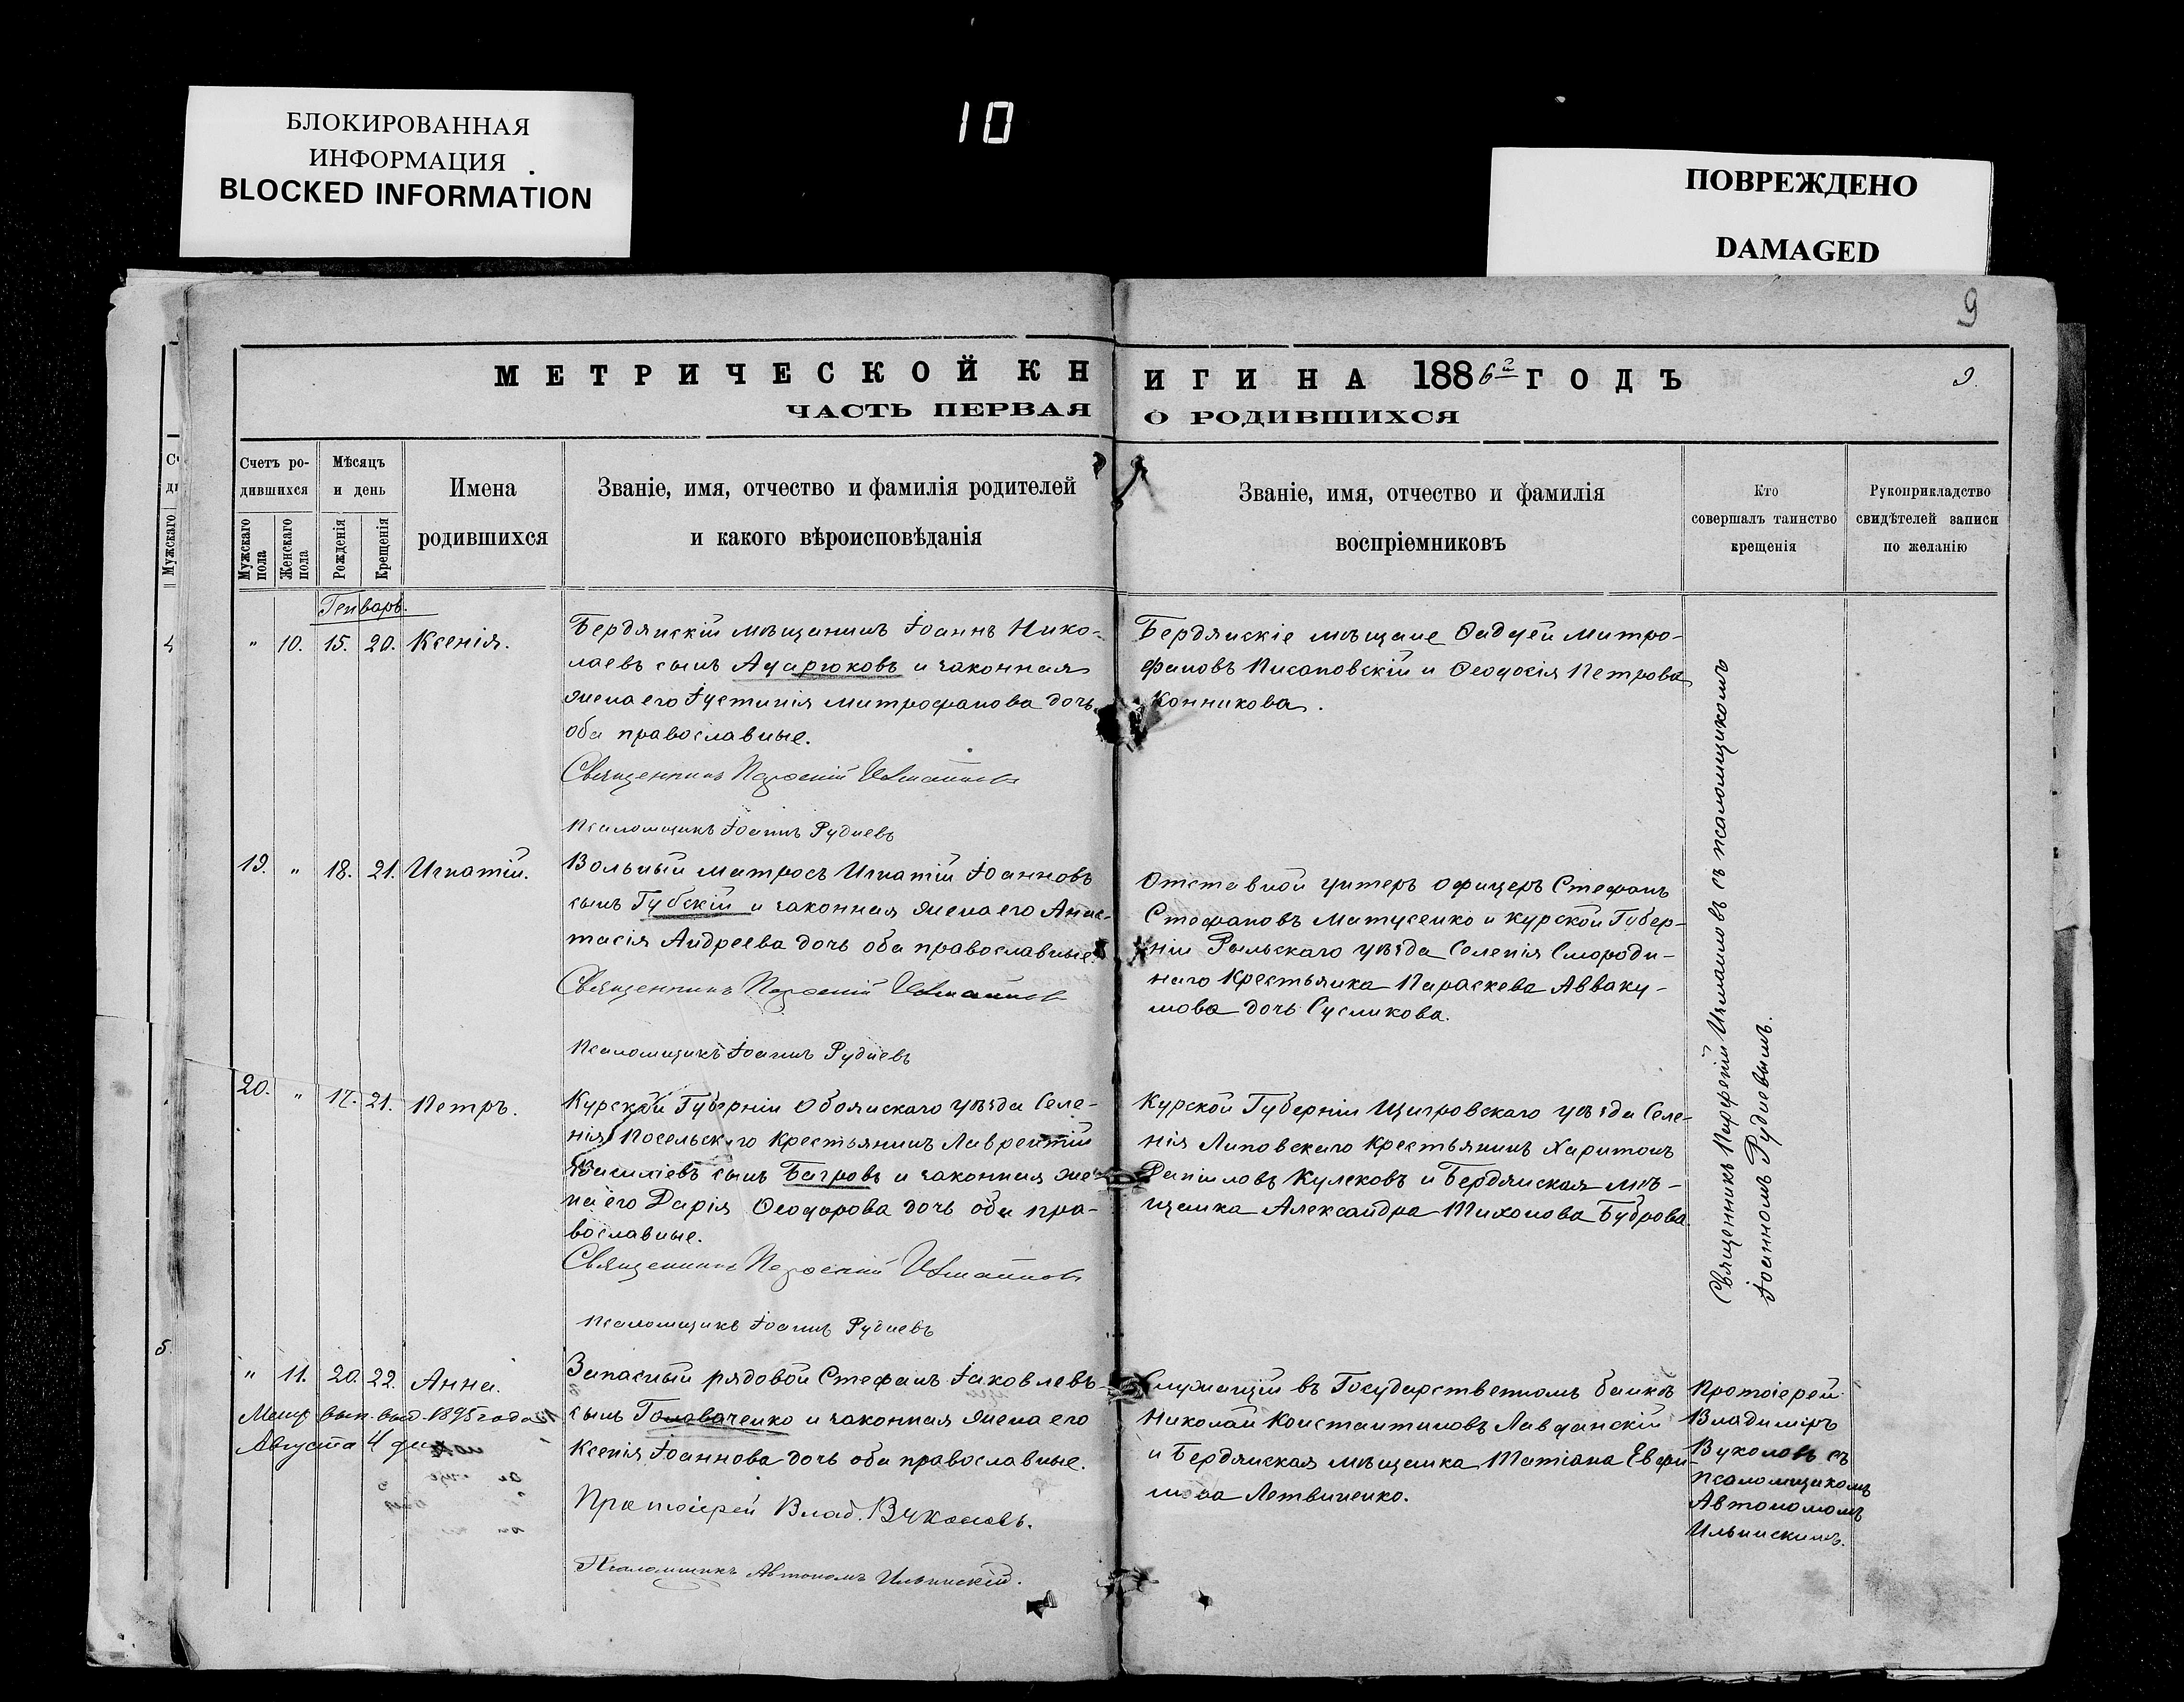 БЛОКИРОВАННАЯ
ИНФОРМАЦИЯ
BLOCKED INFORMATION
10
ПОВРЕЖДЕНО
DAMAGED
9
МЕТРИЧЕСКОЙ КНИГИ НА 1886й ГОДЪ
9.
ЧАСТЬ ПЕРВАЯ О РОДИВШИХСЯ
Счетъ родившихся
Мужскаго пола
Женскаго пола
Мѣсяцъ и день
Рожденія
Крещенія
Имена
родившихся
Званіе, имя, отчество и фамилія родителей
и какого вѣроисповѣданія
Званіе, имя, отчество и фамилія
воспріемниковъ
Кто
совершалъ таинство
крещенія
Рукоприкладство
свидѣтелей записи
по желанію
Генварь.
" 10. 15. 20. Ксенія.
Бердянскій мѣщанинъ Іоаннъ Нико-
лаевъ сынъ Адарюковъ и законная
жена его Іустинія Митрофанова дочь
оба православные.
Священникъ Парѳеній
Псаломщикъ Іоаннъ Рудневъ
Бердянскіе мѣщане Ѳаддей Митро-
фановъ Писановскій и Ѳеодосія Петрова
Конникова.
19. " 18. 21. Игнатій.
Вольный матросъ Игнатій Іоанновъ
сынъ Губскій и законная жена его Анас-
тасія Андреева дочь оба православные.
Священникъ Парѳеній
Псаломщикъ Іоаннъ Рудневъ
Отставной унтеръ офицеръ Стефанъ
Стефановъ Матусенко и Курской Губер-
ніи Рыльскаго уѣзда Селенія Смороди-
наго Крестьянка Параскева Авваку-
мова дочь Сусликова.
20. " 17. 21. Петръ.
Курской Губерніи Обоянскаго уѣзда Селе-
нія Посельскаго Крестьянинъ Лаврентій
Василіевъ сынъ Багровъ и законная же-
на его Дарія Ѳеодорова дочь оба пра-
вославные.
Священникъ Парѳеній
Псаломщикъ Іоаннъ Рудневъ
Курской Губерніи Щигровскаго уѣзда Селе-
нія Липовскаго Крестьянинъ Харитонъ
Даниловъ Кулековъ и Бердянская мѣ-
щанка Александра Тихонова Буброва.
Священникъ Парѳеній съ псаломщикомъ
Іоанномъ Рудневымъ.
" 11. 20. 22. Анна.
Метр. вып. выд. 1895 года
Августа 4 дня
Запасный рядовой Стефанъ Іаковлевъ
сынъ Головаченко и законная жена его
Ксенія Іоаннова дочь оба православные.
Протоіерей Влад. Вуколовъ.
Псаломщикъ Автономъ Ильинскій.
Служащій въ Государственномъ банкѣ
Николай Константиновъ Лавданскій
и Бердянская мѣщанка Татіана Евфи-
мова Летвиненко.
Протоіерей
Владиміръ
Вуколовъ съ
псаломщикомъ
Автономомъ
Ильинскимъ.